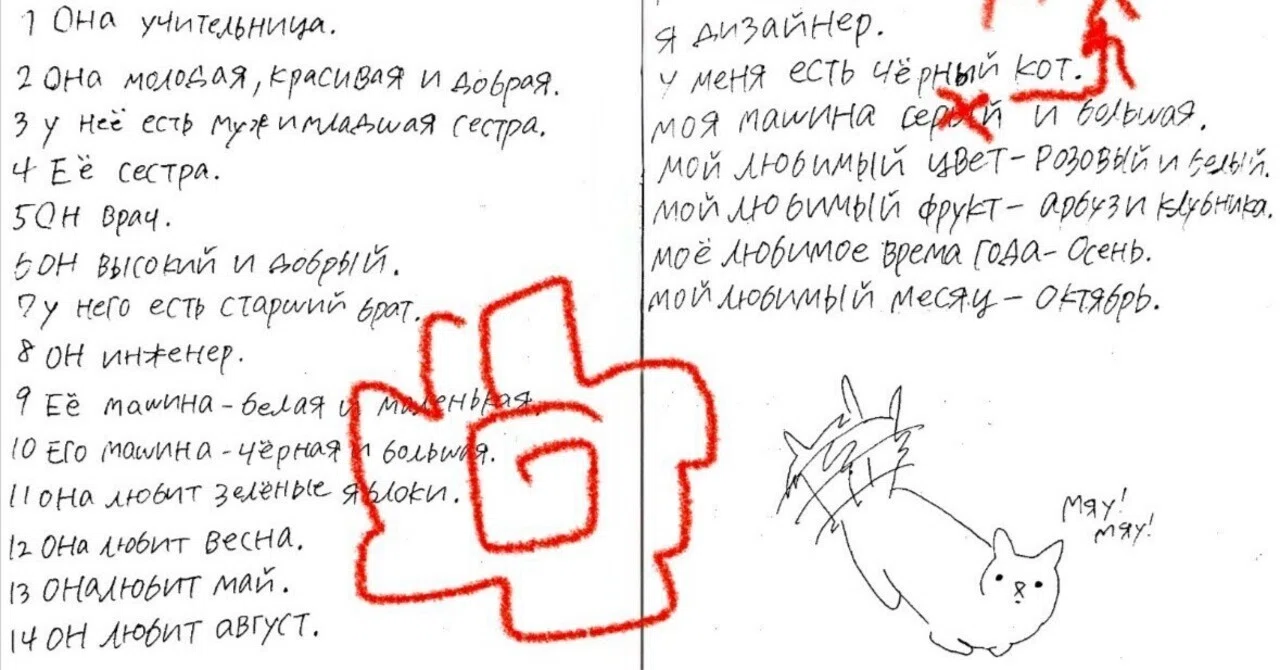 1 Она учительница.
2 Она молодая, красивая и добрая.
3 у неё есть муж и младшая сестра.
4 Её сестра.
5 Он врач.
6 он высокий и добрый.
7 у него есть старший брат.
8 он инженер.
9 Её машина - белая и маленькая.
10 Его машина - чёрная и большая.
11 она любит зелёные яблоки.
12 она любит весна.
13 она любит май.
14 он любит август.
я дизайнер.
у меня есть чёрный кот.
моя машина серый и большая.
мой любимый цвет - розовый и белый.
мой любимый фрукт - арбуз и клубника.
моё любимое время года - осень.
мой любимый месяц - октябрь.
мяу!
мяу!